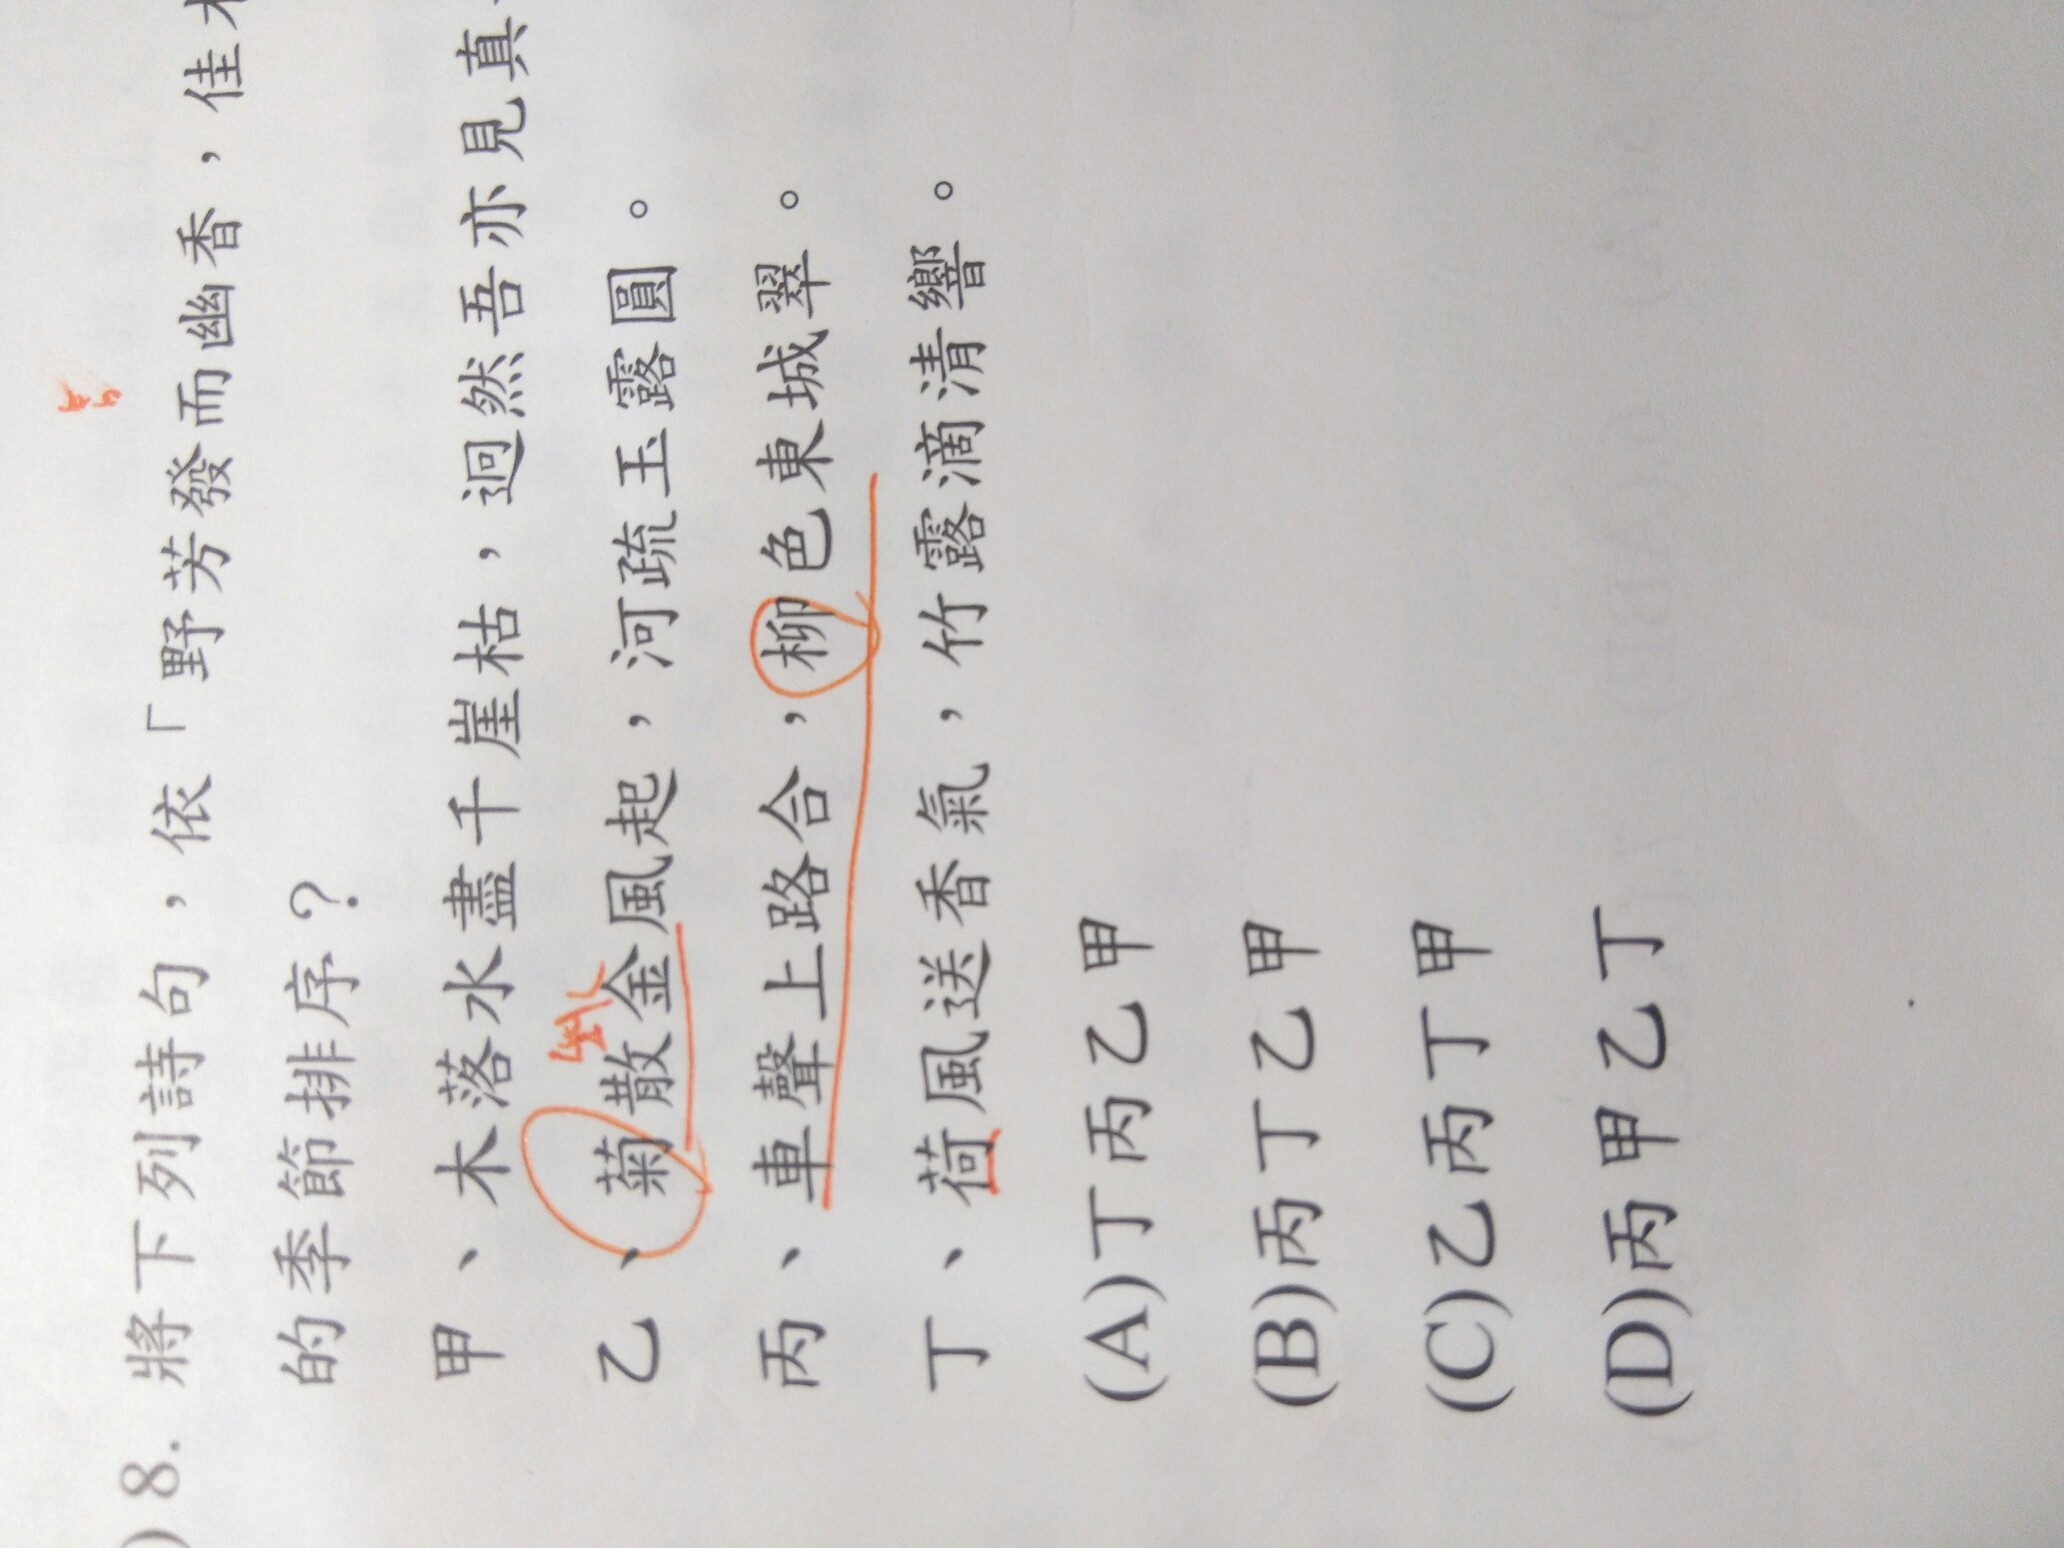 ) 8. 將下列詩句，依「野芳發而幽香，佳
的季節排序？
甲、木落水盡千崖枯，迥然吾亦見真
乙、菊散金風起，河疏玉露圓。
丙、車聲上路合，柳色東城翠。
丁、荷風送香氣，竹露滴清響。
(A)丁丙乙甲
(B)丙丁乙甲
(C)乙丙丁甲
(D)丙甲乙丁